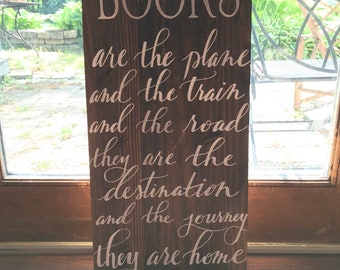 BOOKS
are the plane
and the train
and the road
they are the
destination
and the journey
they are home